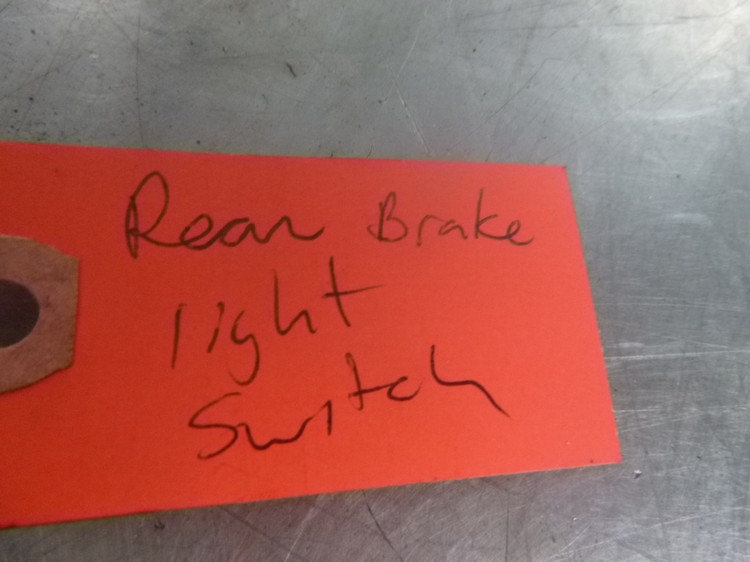 Rear Brake
light
Switch